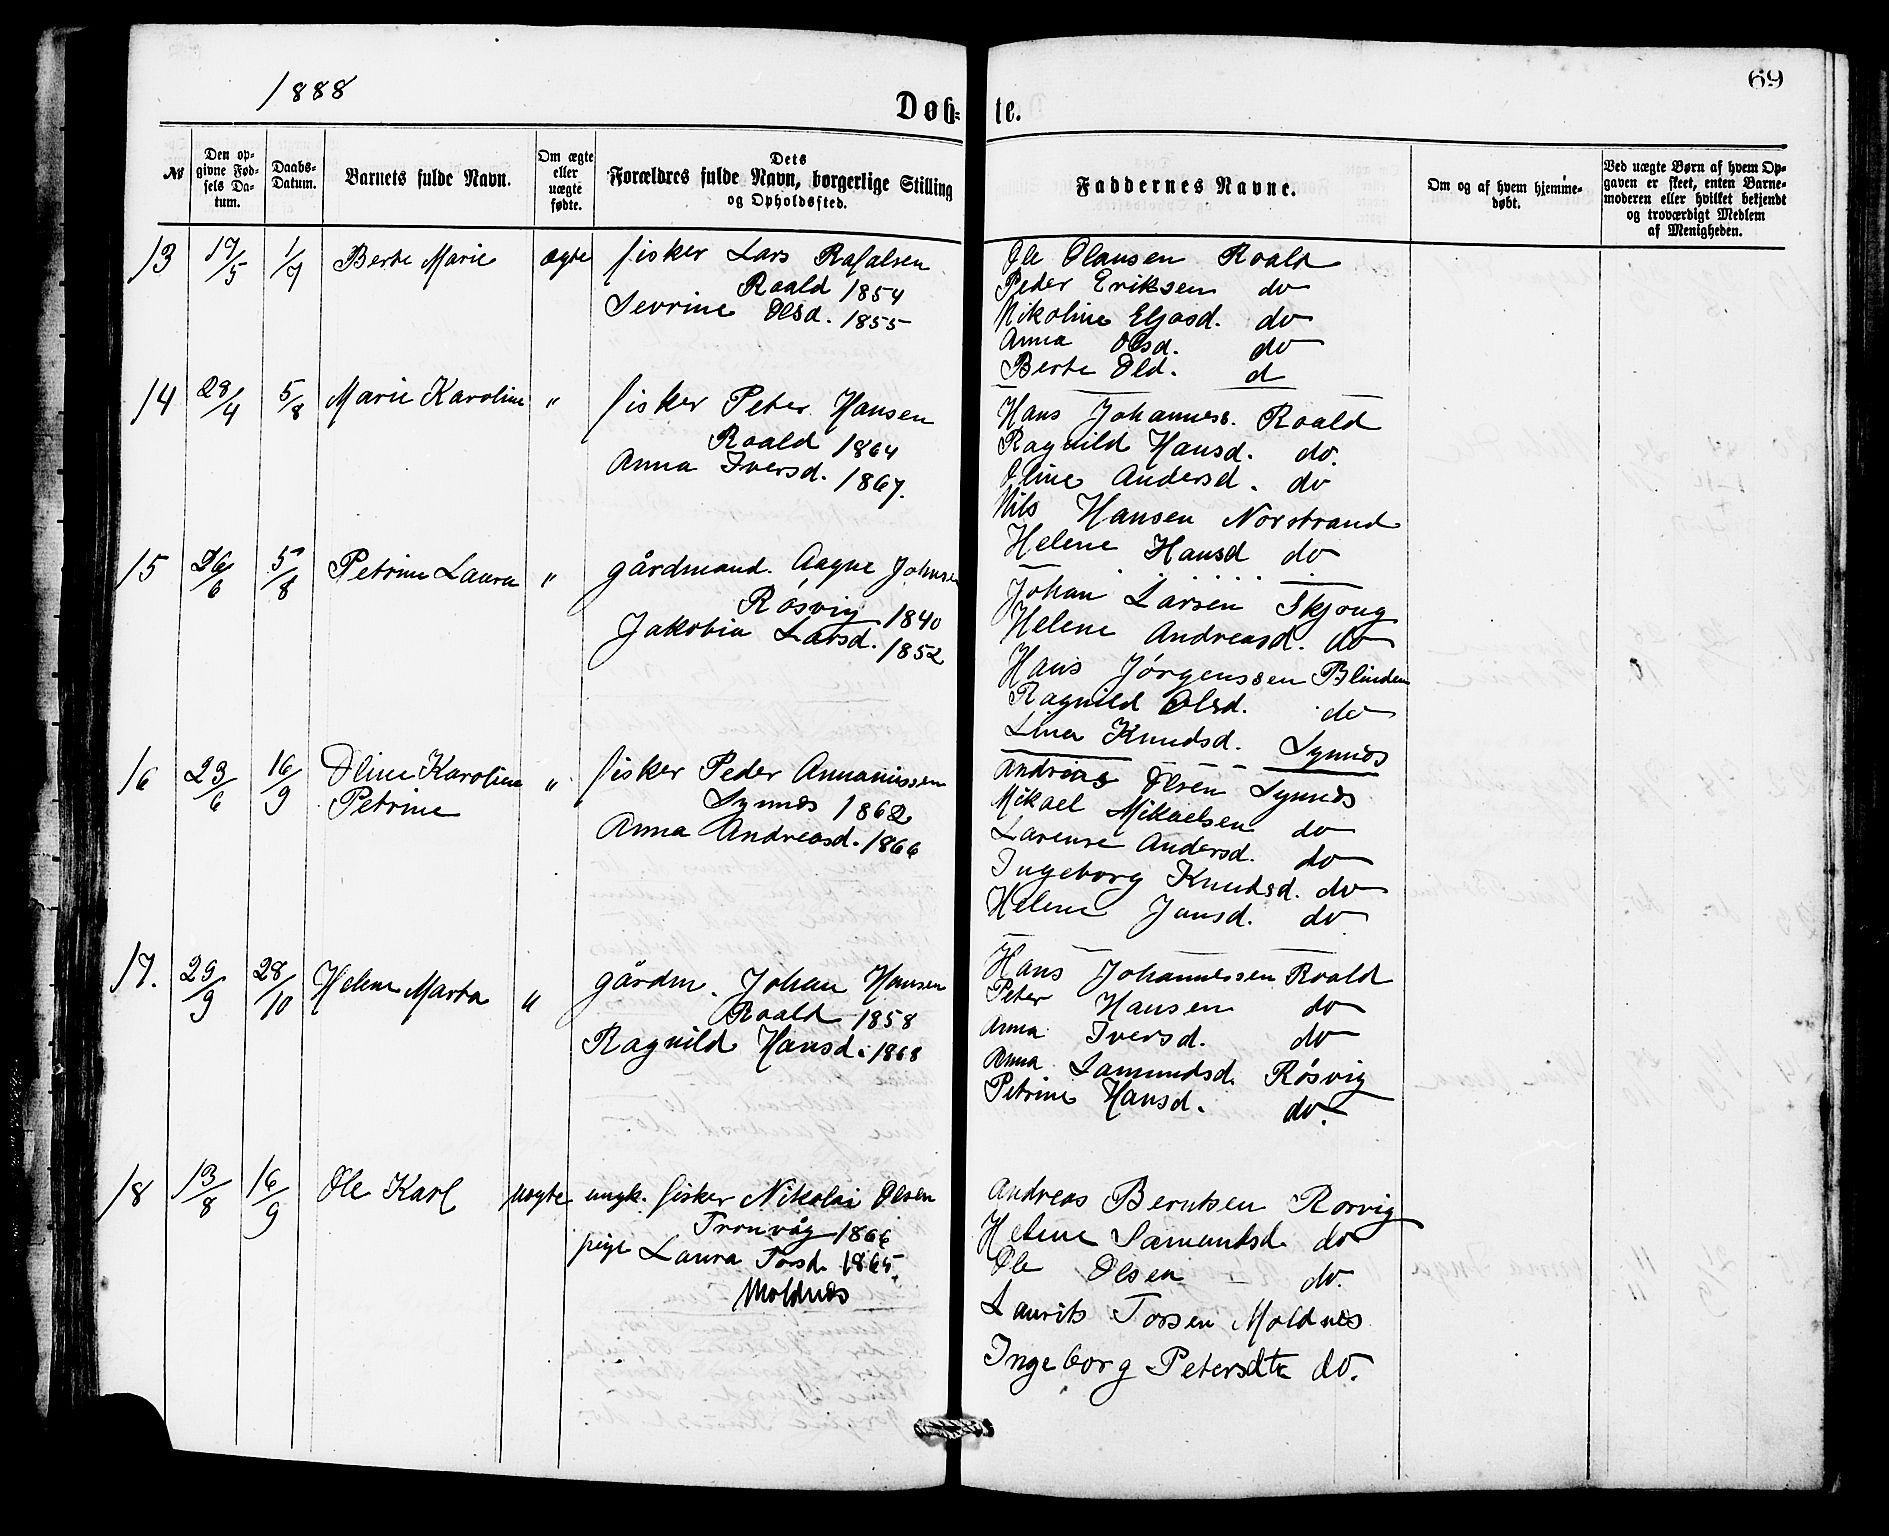 1888
69
Døb-
te.
№
Den op-
givne Fød-
sels Da-
tum.
Daabs-
Datum.
Barnets fulde Navn.
Om ægte
eller
uægte
fødte.
Dets
Forældres fulde Navn, borgerlige Stilling
og Opholdssted.
Faddernes Navne.
Om og af hvem hjemme-
døbt.
Ved uægte Børn af hvem Op-
gaven er skeet, enten Barne-
moderen eller hvilket bekjendt
og troværdigt Medlem
af Menigheden.
13 19/5 1/7 Berte Marie ægte fisker Lars Rafalsen
Roald 1854
Sevrine Olsd. 1855
Ole Olausen Roald
Peder Eriksen do
Nikoline Eljasd. do
Anna Olsd. do
Berte Old. d
14 28/4 5/8 Marie Karoline " fisker Peter Hansen
Roald 1864
Anna Iversd. 1867.
Hans Johanness. Roald
Ragnild Hansd. do.
Oline Andersd. do
Nils Hansen Norstrand
Helene Hansd do
15 26/6 5/8 Petrine Laura " gårdmand. Aagne Johnsen
Røsvig 1840
Jakobia Larsd. 1852
Johan Larsen Skjong
Helene Andreasd. do
Hans Jörgenssen Blindem
Ragnild Olsd. do
Lina Knudsd. Synnes
16 23/6 16/9 Oline Karoline
Petrine
" fisker Peder Annaniassen
Synnes 1862
Anna Andreasd. 1866
Andreas Olsen Synnes
Mikael Mikaelsen do
Larense Andersd. do
Ingeborg Knudsd. do
Helene Jansd. do
17. 29/9 28/10 Helene Marta " gårdm. Johan Hansen
Roald 1858
Ragnild Hansd. 1868
Hans Johannessen Roald
Peter Hansen do
Anna Iversd. do
Anna Samundsd. Røsvig
Petrine Hansd. do.
18 13/8 16/9 Ole Karl uægte ungk. fisker Nikolai Olsen
Tronvåg 1866
pige Laura Torsd. 1865.
Moldnæs
Andreas Berntsen Rorvig
Helene Samundsd do
Ole Olsen do.
Laurits Torsen Moldnes
Ingeborg Petersdtr do.